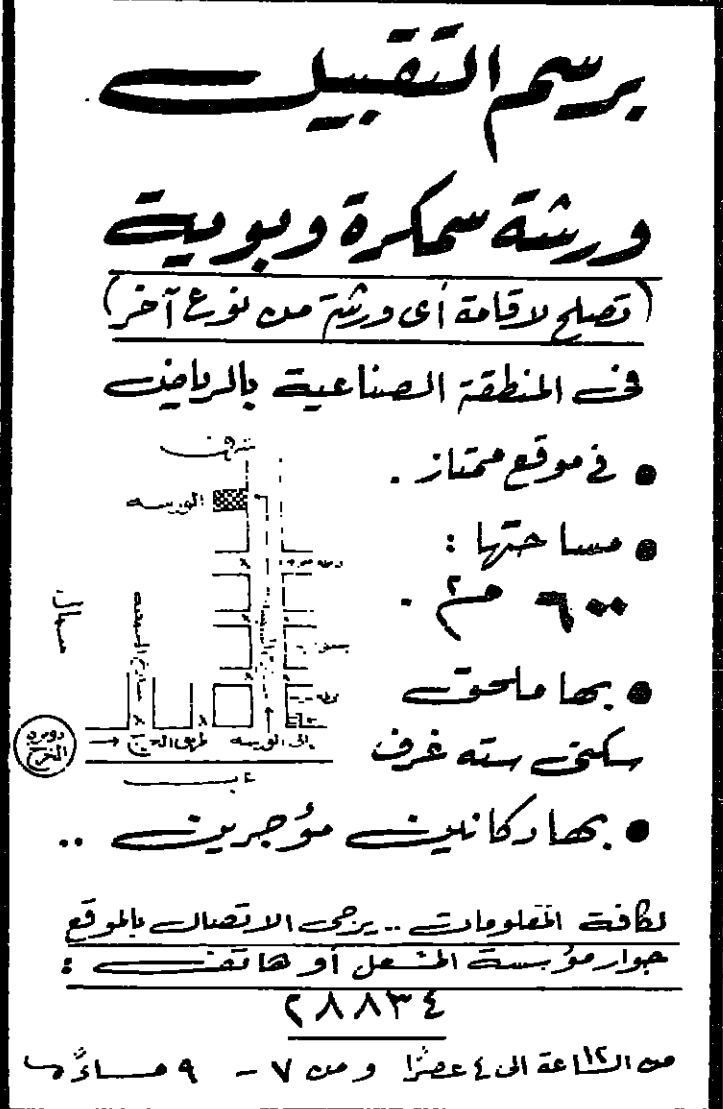 برسم التقبيل
ورشة سمكرة وبوية
(تصلح لاقامة أى ورشة من نوع آخر)
فى المنطقة الصناعية بالرياض
• فى موقع ممتاز .
• مساحتها :
٦٠٠ م٢ .
• بها ملحق
سكنى سته غرف
• بها دكانين مؤجرين ..
شرق
الورشه
شمال
إلى الورشه
طريق الخرج
دوره الخرج
لكافة المعلومات .. يرجى الاتصال بالموقع
جوار مؤسسة المشعل أو هاتف :
٢٨٨٣٤
من الساعة ١٢ الى ٤ عصرًا و من ٧ - ٩ مساءً